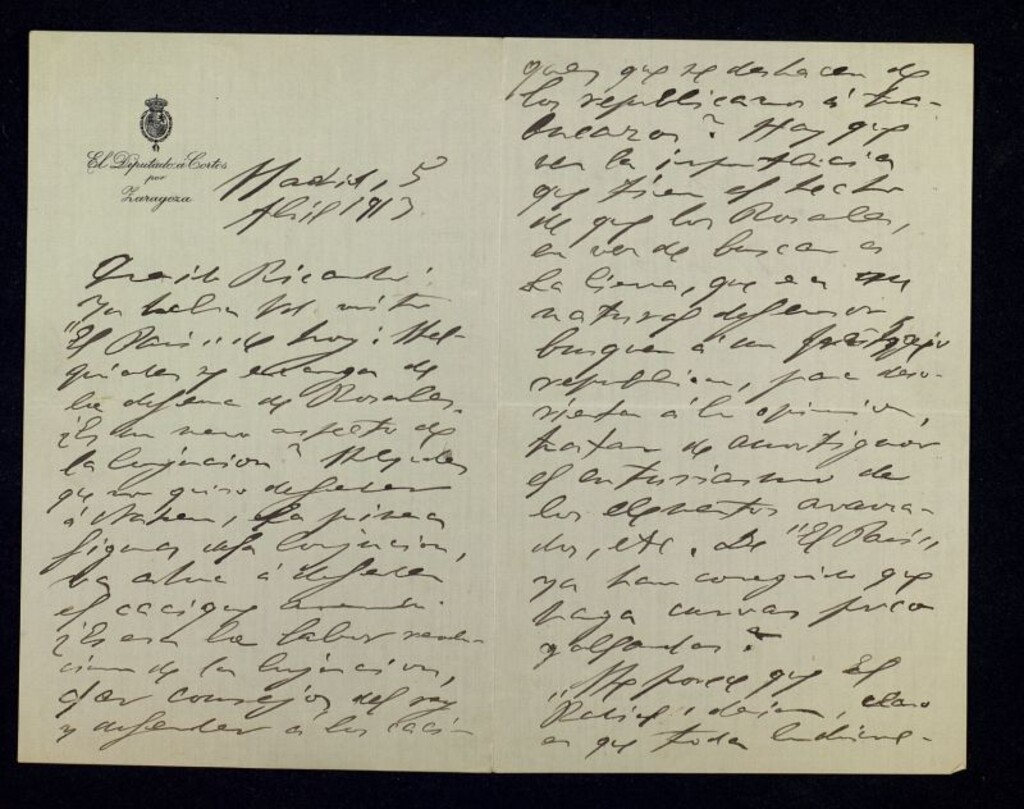 El Diputado á Cortes
por
Zaragoza
Madrid, 5
Abril 1913
Querido Ricardo:
Ya habrá Vd visto
"El País" de hoy: Mel-
quiades se encarga de
la defensa de Rosales.
¿Es un nuevo aspecto de
la conjunción? Melquiades
que no quiso defender
á Nakens, la primera
figura de la conjunción,
va ahora á defender
el cacique
¿Es esta la labor revolu-
cionaria de la conjunción,
dar consejos del rey
y defender á los caci-
ques que se deshacen de
los republicanos á tra-
bucazos? Hay que
ver la importancia
que tiene el hecho
de que los Rosales,
en vez de buscar á
La Cierva, que es su
natural defensor,
busquen á un
republicano, para deso-
rientar á la opinión,
tratar de amortiguar
el entusiasmo de
los elementos avanza-
dos, etc. De "El País"
ya han conseguido que
haga
Me parece que El
Radical debían, claro
es que toda